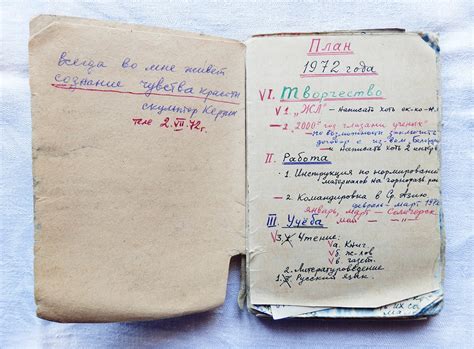 всегда во мне живет
сознание чувства красоты
скульптор
2. VII. 72 г.
План
1972 года
VI. Творчество
V 1. "ЖЛ" – написать хоть
– 2. "2000й год глазами ученых"
договор с из-вом
и написать хоть 2
II. Работа
1. Инструкция по нормированию
материалов на
– 2. Командировка в Ср. Азию
феврал – март 1972
январь, март – Солигорск
май
III. Учёба
V 3. Чтение:
Vа. Книг
Vб. ж-лов
Vв. газет.
2. Литературоведение
1. Русский язык.